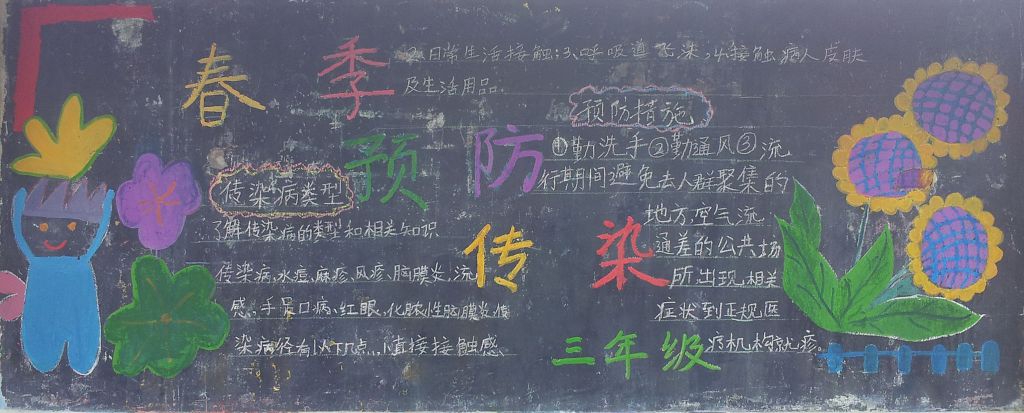 春季
预防
传染
三年级
传染病类型
了解传染病的类型和相关知识
传染病,水痘,麻疹,风疹,脑膜炎,流
感,手足口病,红眼,化脓性脑膜炎传
染病径有以下几点,1直接接触感
2日常生活接触;3、呼吸道飞染,4、接触病人皮肤
及生活用品
预防措施
①勤洗手②勤通风③流
行期间避免去人群聚集的
地方空气流
通差的公共场
所出现相关
症状到正规医
疗机构就疹。